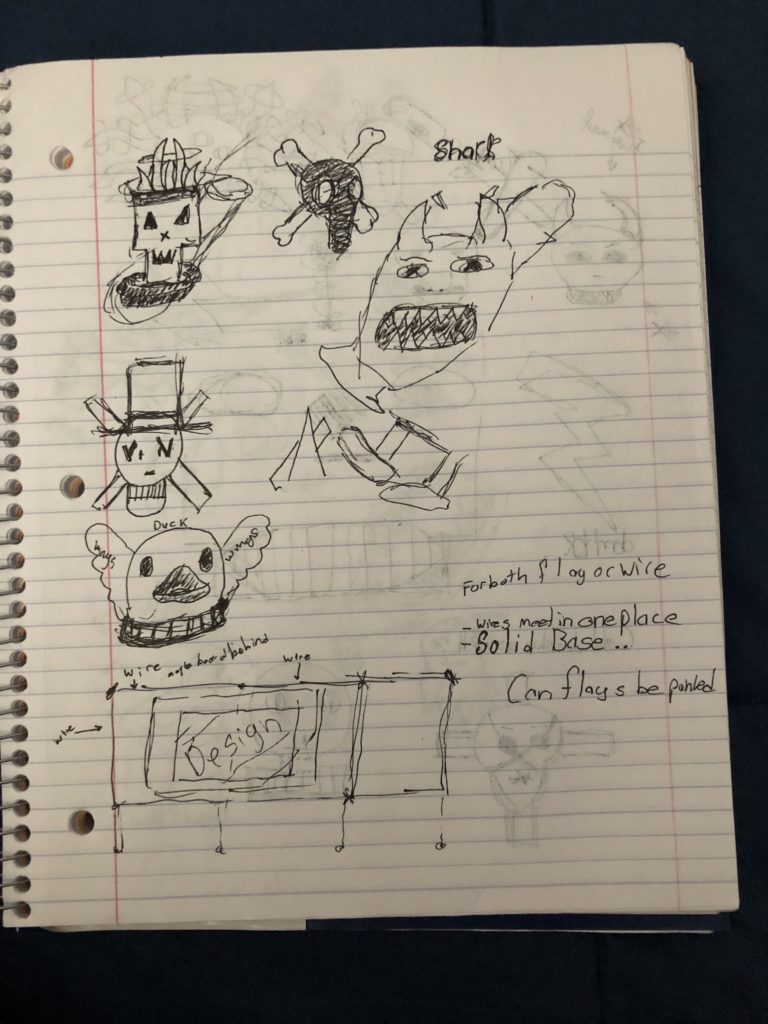 Shark
Duck
wings
wings
For both flag or wire
- wires meet in one place
- Solid Base ..
wire maybe board behind
wire
wire
Design
Can flags be painted